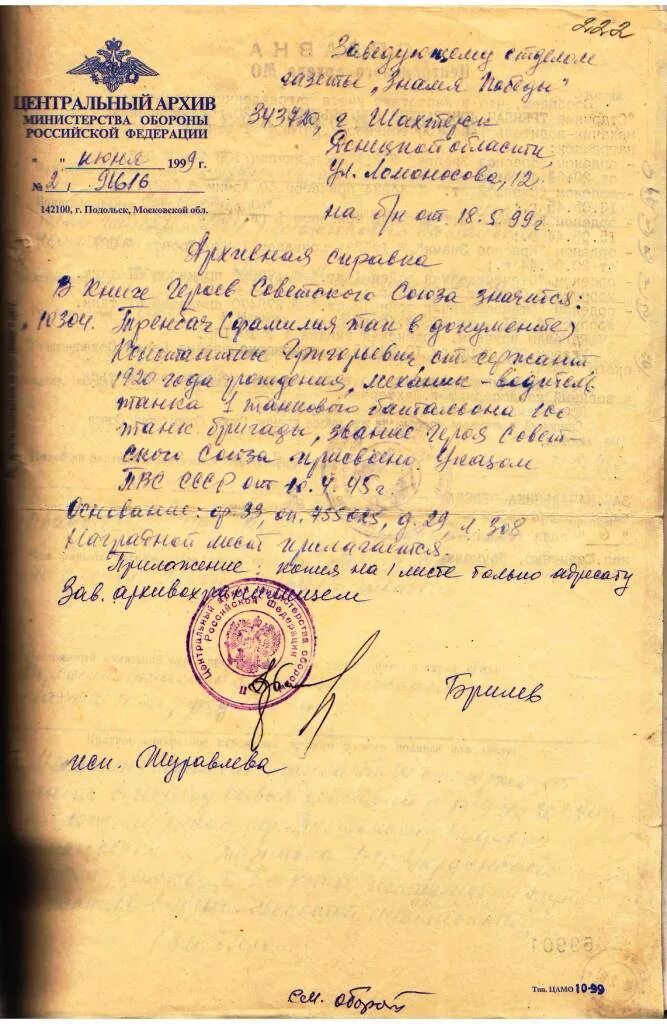 222
ЦЕНТРАЛЬНЫЙ АРХИВ
МИНИСТЕРСТВА ОБОРОНЫ
РОССИЙСКОЙ ФЕДЕРАЦИИ
" " июня 1999 г.
№ 2,
142100, г. Подольск, Московской обл.
Заведующему отделом
газеты „Знамя Победы"
343720, г. Шахтерск
Донецкой области,
ул. Ломоносова, 12
на б/н от 18.5.99г
Архивная справка
В Книге Героев Советского Союза значится:
10304. Тренбач (фамилия так в документе)
Константин Григорьевич ст. сержант
1920 года рождения, механик-водитель
танка 1 танкового батальона
танк бригады, звание Героя Совет-
ского Союза присвоено Указом
ПВС СССР от 10.4.45г.
Основание: ф. 33, оп. 755025, д. 29, л. 308
Наградной лист прилагается.
Приложение: копия на 1 листе только адресату
Зав. архивохранилищем
Центральный архив Министерства обороны
Российской Федерации
Брилев
исп. Журавлева
см. оборот
Тип. ЦАМО 10-99